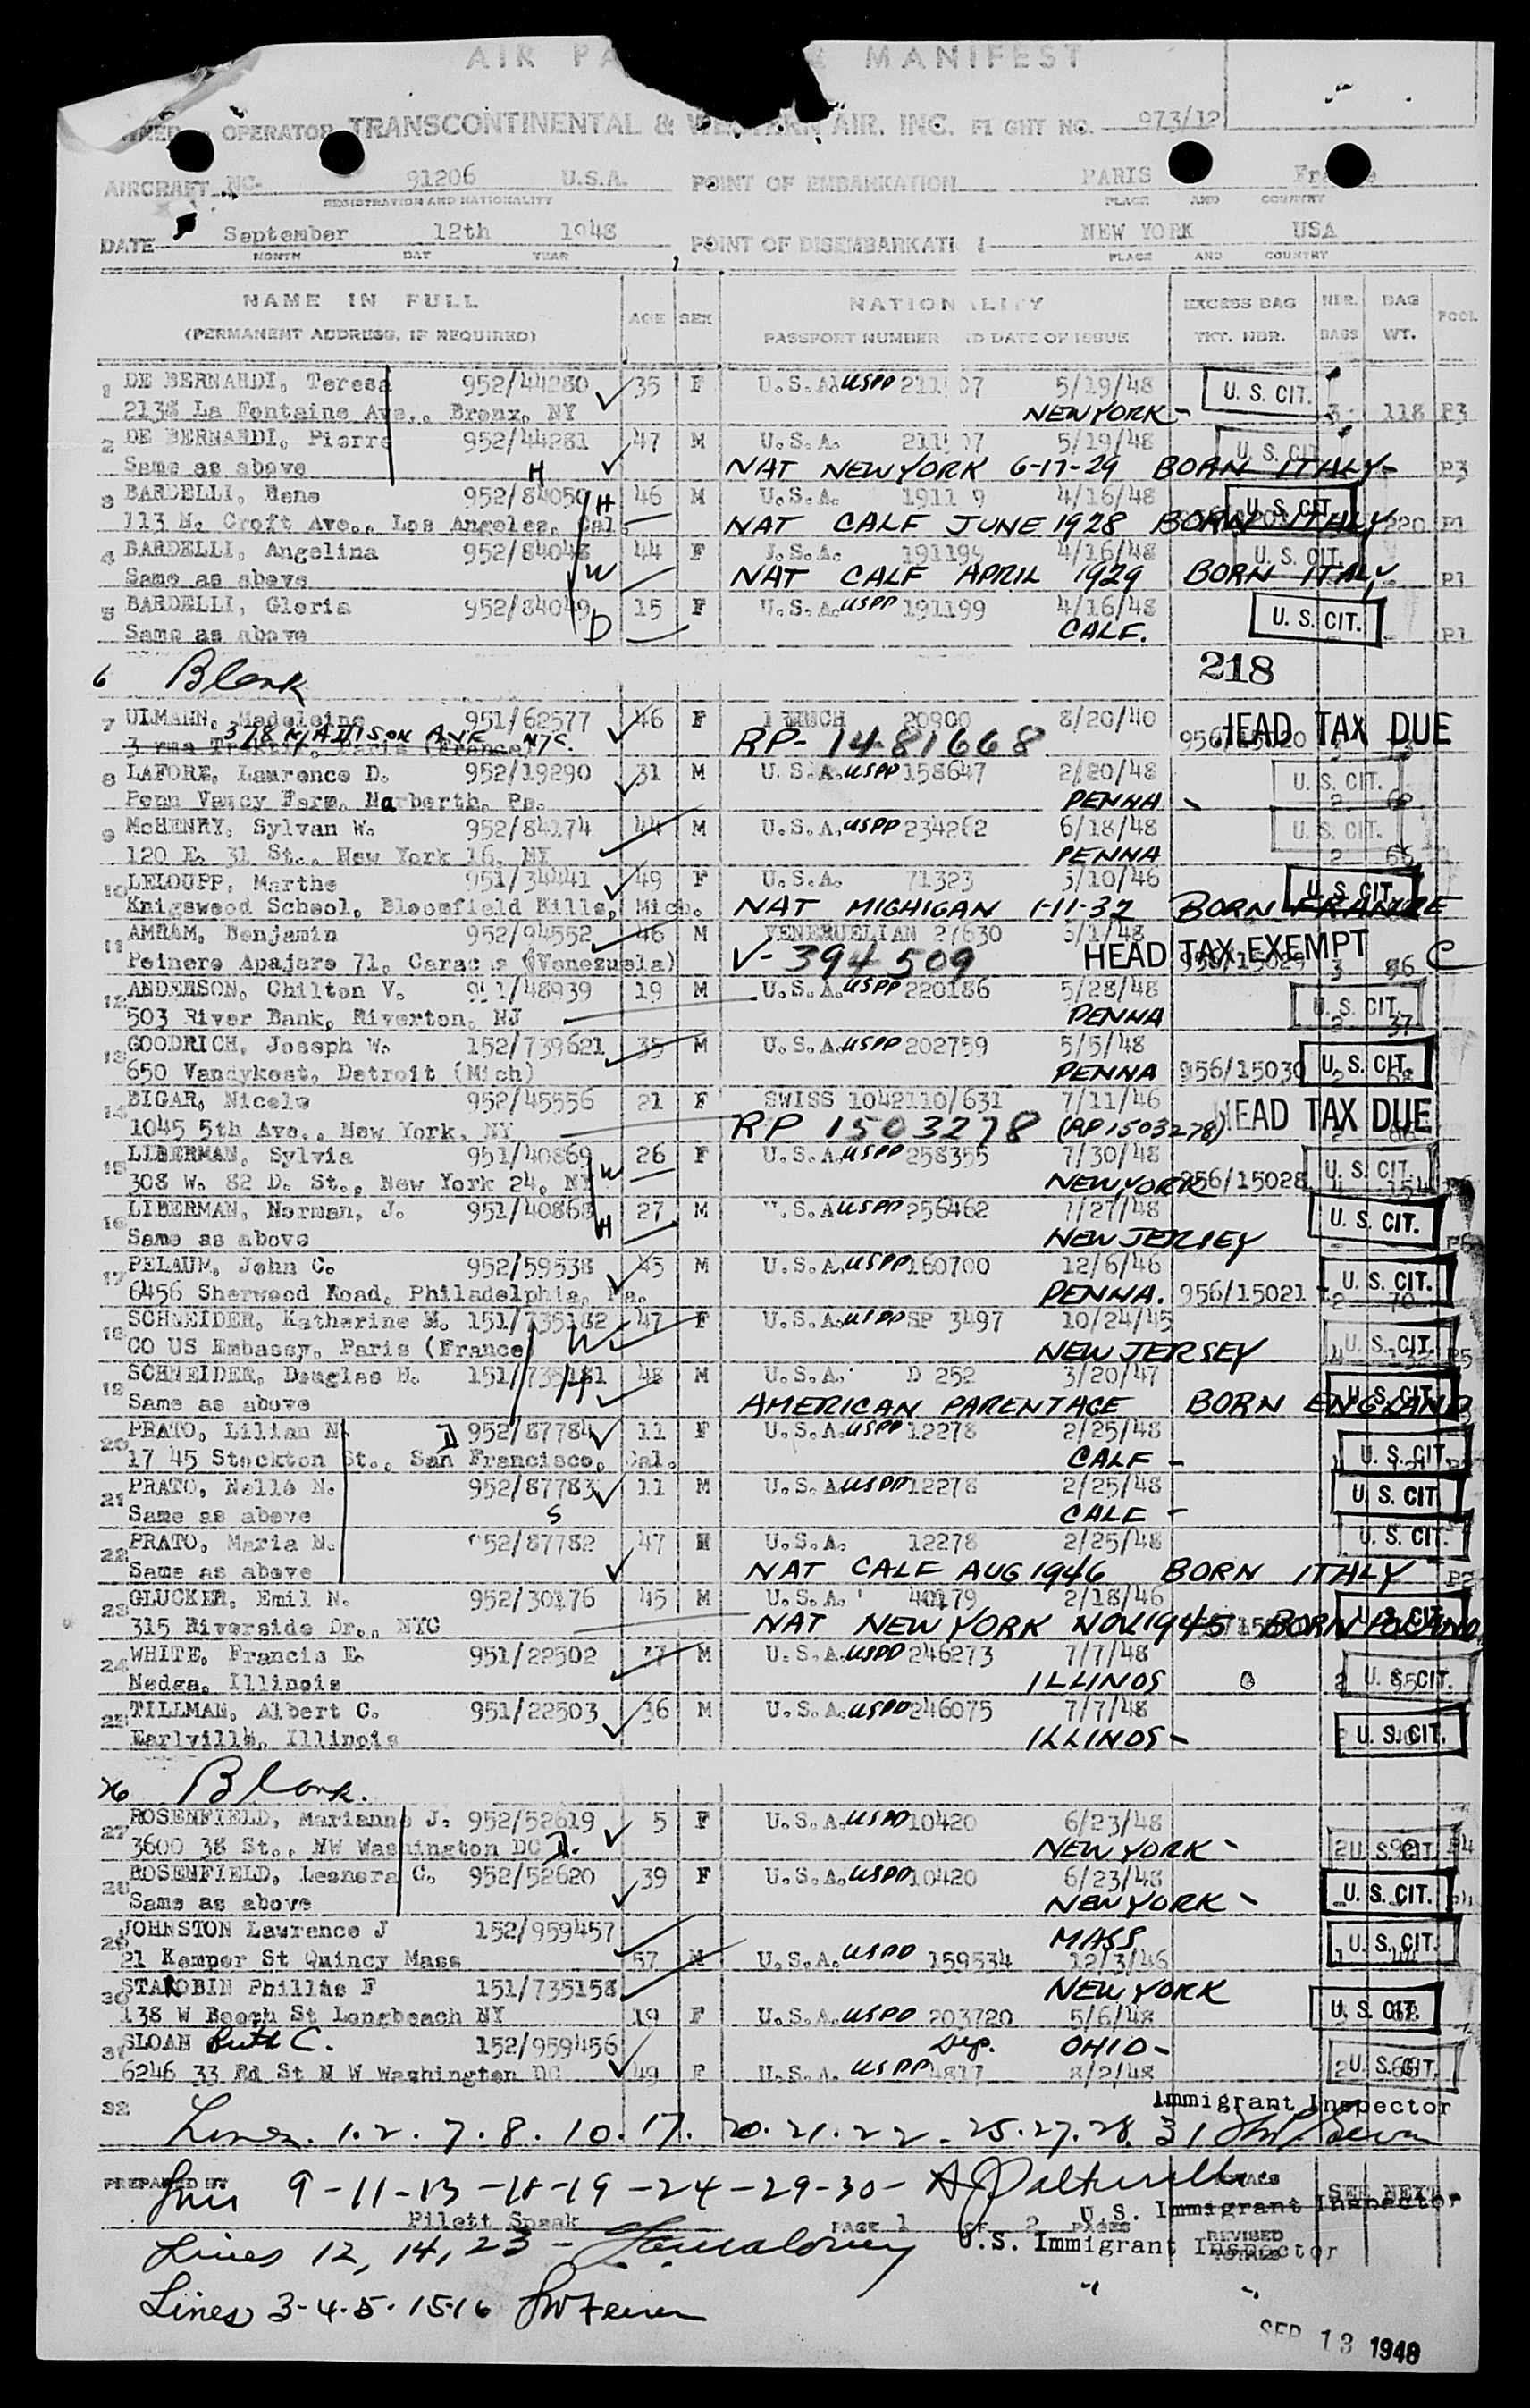 AIR MANIFEST
OPERATOR TRANSCONTINENTAL & WESTERN AIR, INC. FLIGHT NO. 973/12
AIRCRAFT NO. 91206 U.S.A. POINT OF EMBARKATION PARIS
REGISTRATION AND NATIONALITY PLACE AND COUNTRY
DATE September 12th 1948 POINT OF DISEMBARKATI NEW YORK USA
MONTH DAY YEAR PLACE AND COUNTRY
NAME IN FULL AGE SEX NATIONALITY EXCESS BAG NBR. BAG POOL
(PERMANENT ADDRESS, IF REQUIRED) PASSPORT NUMBER DATE OF ISSUE TKT. NBR. BAGS WT.
1 DE BERNARDI, Teresa 952/44280 35 F U.S.A. USPP 5/19/48 U. S. CIT.
2138 La Fontaine Ave., Bronx, NY NEW YORK - 3 118 P3
2 DE BERNARDI, Pierre 952/44281 47 M U.S.A. 5/19/48 U. S. CIT
Same as above H NAT NEW YORK 6-17-29 BORN ITALY - P3
3 BARDELLI, Rene 952/84050 H 46 M U.S.A. 4/16/48 U. S. CIT
113 N. Croft Ave., Los Angeles, Cal. NAT CALF JUNE 1928 BORN ITALY 220 P1
4 BARDELLI, Angelina 952/84048 44 F U.S.A. 4/16/48 U. S. CIT.
Same as above W NAT CALF APRIL 1929 BORN ITALY P1
5 BARDELLI, Gloria 952/84049 15 F U.S.A. USPP 191199 4/16/48 U. S. CIT.
Same as above D CALF. P1
6 Blank 218
7 ULMANN, Madeleine 951/62577 46 F 20900 8/20/40 HEAD TAX DUE
378 MADISON AVE NYC. Paris (France) RP- 1481668
8 LAFORE, Lawrence D. 952/19290 31 M U.S.A. USPP 158647 2/20/48 U. S. CIT.
Farm, Narberth, Pa. PENNA 2
9 McHENRY, Sylvan W. 952/84174 44 M U.S.A. USPP 234262 6/18/48 U. S. CIT.
120 E. 31 St., New York 16, NY PENNA 2
10 LELOUPP, Marthe 951/34441 49 F U.S.A. 71323 U. S. CIT.
Knigswood School, Bloomfield Hills, Mich. NAT MIGHIGAN 1-11-32 BORN FRANCE
11 AMRAM, Benjamin 952/94552 46 M VENEZUELIAN HEAD TAX EXEMPT
Peinero Apajaro 71, Caracas (Venezuela) V- 394509 956/15029 3 C
12 ANDERSON, Chilton V. 951/48939 19 M U.S.A. USPP 220186 5/28/48 U. S. CIT.
503 River Bank, Riverton, NJ PENNA 2 37
13 GOODRICH, Joseph W. 152/739621 35 M U.S.A. USPP 202759 5/5/48 U. S. CIT.
650 Vandykest, Detroit (Mich) PENNA 956/15030
14 BIGAR, Nicole 952/45556 21 F SWISS 1042110/631 7/11/46 HEAD TAX DUE
1045 5th Ave., New York, NY RP 1503278 (RP 1503278)
15 LIBERMAN, Sylvia 951/40869 W 26 F U.S.A. USPP 258355 7/30/48 U. S. CIT.
308 W. 82 D. St., New York 24, NY NEW YORK 956/15028 4 154 P6
16 LIBERMAN, Norman, J. 951/40868 27 M U.S.A. USPP 256462 7/27/48 U. S. CIT.
Same as above H NEW JERSEY P6
17 PELAUM, John C. 952/59538 45 M U.S.A. USPP 160700 12/6/46 U. S. CIT.
6456 Sherwood Road, Philadelphia, Pa. PENNA. 956/15021 2 70
18 SCHNEIDER, Katharine M. 151/735182 47 F U.S.A. USPP SP 3497 10/24/45
CO US Embassy, Paris (France) W NEW JERSEY U. S. CIT. P5
19 SCHNEIDER, Douglas H. 151/735181 48 M U.S.A. D 252 3/20/47
Same as above H AMERICAN PARENTAGE BORN ENGLAND U. S. CIT.
20 PRATO, Lilian N. D 952/87784 11 F U.S.A. USPP 12278 2/25/48
17 45 Stockton St., San Francisco, Cal. CALF - U. S. CIT
21 PRATO, Nello N. 952/87783 11 M U.S.A. USPP 12278 2/25/48 U. S. CIT
Same as above S CALF -
22 PRATO, Maria N. 952/87782 47 U.S.A. 12278 2/25/48 U. S. CIT.
Same as above NAT CALF AUG 1946 BORN ITALY P2
23 GLUCKER, Emil N. 952/30176 45 M U.S.A. 2/18/46 U. S. CIT.
315 Riverside Dr., NYC NAT NEW YORK NOV. 1945 BORN POLAND
24 WHITE, Francis E. 951/22502 37 M U.S.A. USPP 246273 7/7/48
Illinois ILLINOS 2 U. S. CIT.
25 TILLMAN, Albert C. 951/22503 36 M U.S.A. USPP 246075 7/7/48
Earlville, Illinois ILLINOS - U. S. CIT.
26 Blank.
27 ROSENFIELD, Marianne J. 952/52619 5 F U.S.A. USPP 10420 6/23/48
3600 38 St., NW Washington DC D. NEW YORK - 2 U. S. CIT. P4
28 ROSENFIELD, Leonora C. 952/52620 39 F U.S.A. USPP 10420 6/23/48
Same as above NEW YORK - U. S. CIT. P4
29 JOHNSTON Lawrence J 152/959457 MASS
21 Kemper St Quincy Mass 57 M U.S.A. USPP 159534 12/3/46 1 U. S. CIT.
30 STAROBIN Phillis F 151/735158 NEW YORK
138 W Beech St Longbeach NY 19 F U.S.A. USPP 203720 5/6/48 U. S. CIT.
31 SLOAN Ruth C. 152/959456 Dip. OHIO -
6246 33 Rd St N W Washington DC 49 F U.S.A. USPP 4817 8/2/48 2 U. S. CIT.
32 Immigrant Inspector
Lines. 1. 2. 7. 8. 10. 17. 20. 21. 22. 25. 27. 28. 31
PREPARED BY 9 - 11 - 13 - 18 - 19 - 24 - 29 - 30 - TOTALS SEE NEXT
U. S. Immigrant Inspector
Pilett Speak PAGE 1 OF 2 PAGES REVISED TOTALS
Lines 12, 14, 23 - U.S. Immigrant Inspector
Lines 3-4-5-15-16 " "
SEP 13 1948